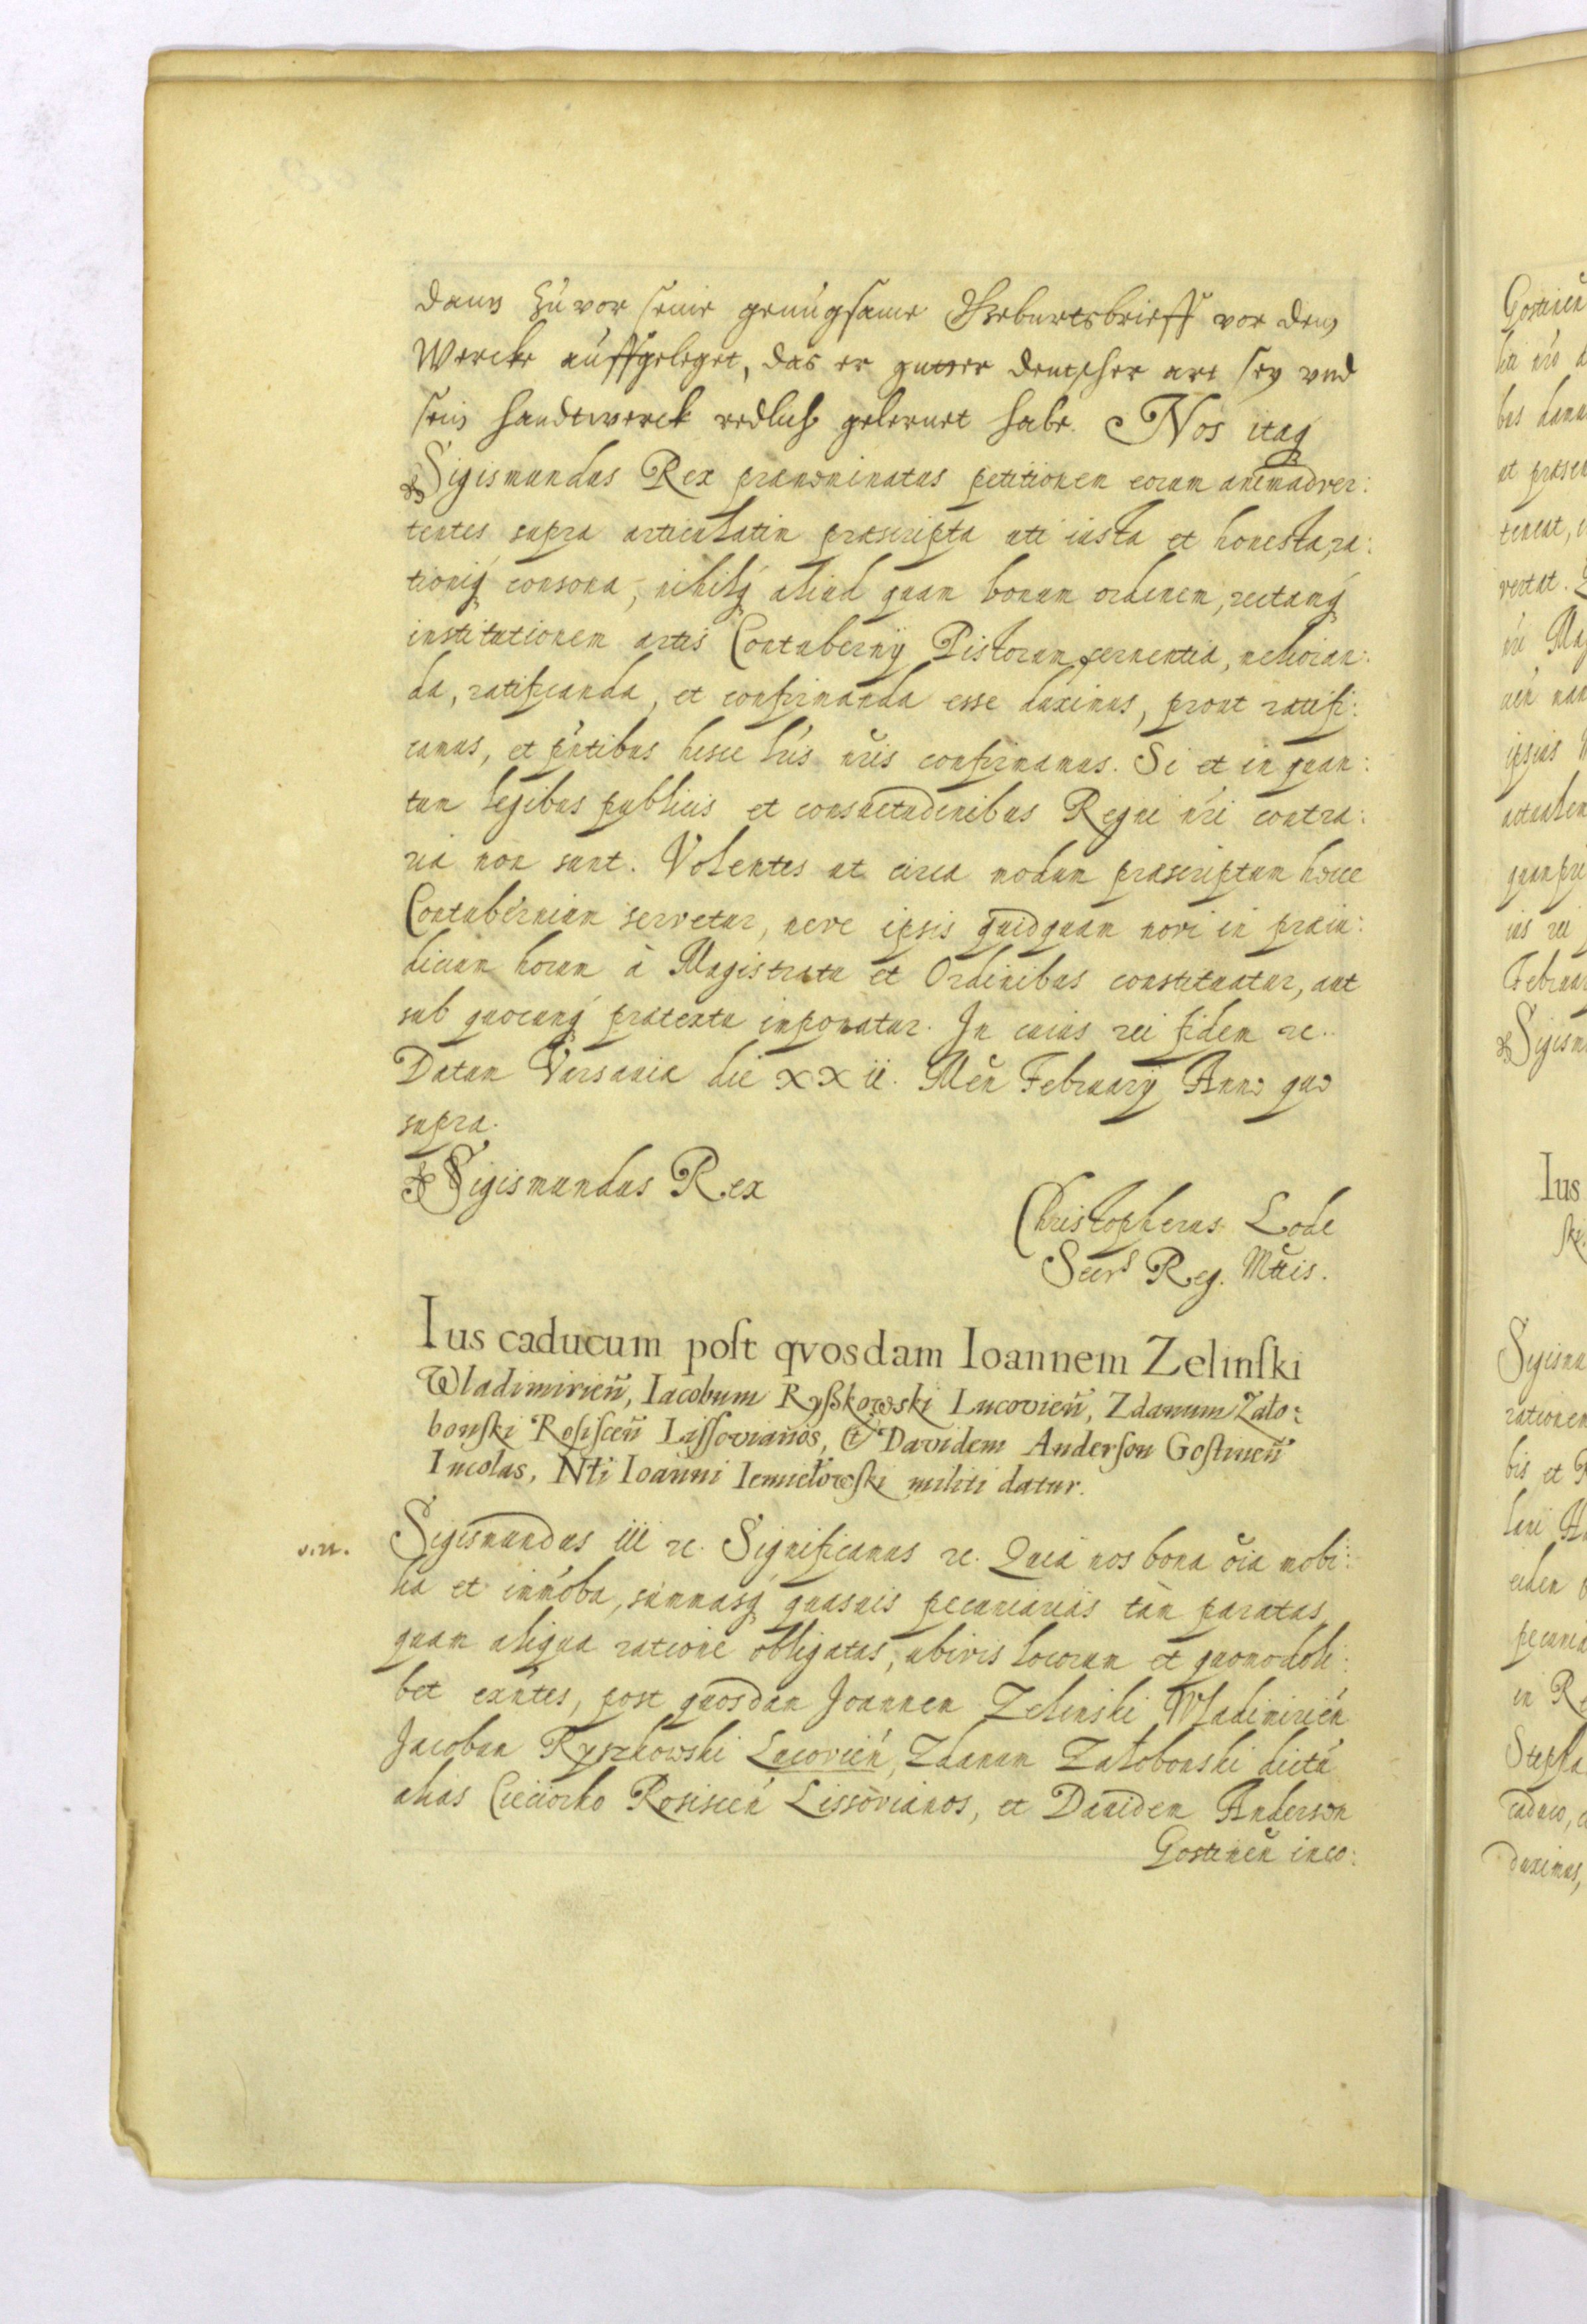 dann zuvor seine genugsame Geburtsbrieff vor dem
Wercke auffgeleget, das er gutter deutscher art sey vnd
sein handtwerck redlich gelernet habe. Nos itaq
Sigismundus Rex prænominatus petitionem eorum animadver:
tentes supra articulatim præscripta uti iusta et honesta, ra:
tioniq consona, nihilq aliud quam bonum ordinem, rectamq
institutionem artis Contubernÿ Pistorum sernentia, melioran:
da, ratificanda, et confirmanda esse duximus, prout ratifi:
camus, et pñtibus hisce lr̃is nr̃is confirmamus. Si et in quan:
tum legibus publicis et consuetudinibus Regni nr̃i contra:
ria non sunt. Volentes ut circa modum præscriptum hocce
Contubernium servetur, neve ipsis quidquam novi in præiu:
dicium horum à Magistratu et Ordinibus constituatur, aut
sub quocunq prætextu imponatur. In cuius rei fidem rc.
Datum Varsauiæ die XX ii. Men̄ Februarÿ Anno quo
supra.
Sigismundus Rex
Christopherus Lode
Secr̃s Reg. Mttis.
Ius caducum post qvosdam Ioannem Zelinski
Wladimirien̄, Iacobum Ryßkowski Lucovien̄, Zdanum Zało:
bonski Rosiscen̄ Lissovianos, et Davidem Anderson Gostinen̄
Incolas, Nłi Ioanni Iemiełowski militi datur.
v.n. Sigismundus iii rc. Significamus rc. Quia nos bona oĩa mobi:
lia et im̃obа, summasq quasuis pecuniarias tàm paratas
quam aliqua ratione obligatas, ubivis locorum et quomodoli:
bet exn̄tes, post quosdam Joannem Zelinski Wladimirien̄
Jacobum Ryszkowski Lucovien̄, Zdanum Załobonski dictũ
alias Cieciorko Rosiscen̄ Lissovianos, et Dauidem Anderson
Gostinen̄ inco: